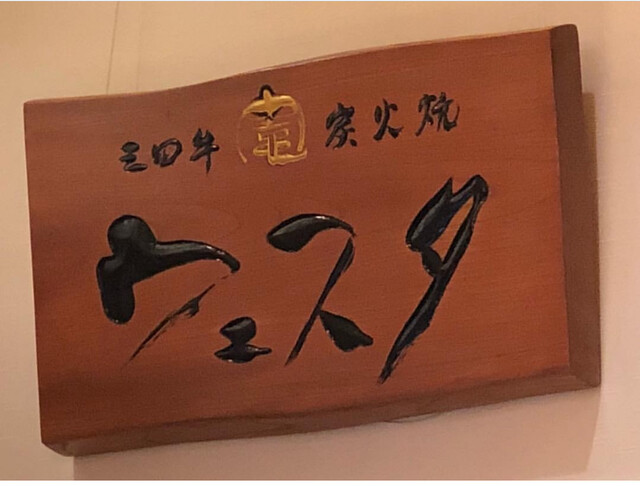 三田牛 竃 炭火焼
ウェスタ